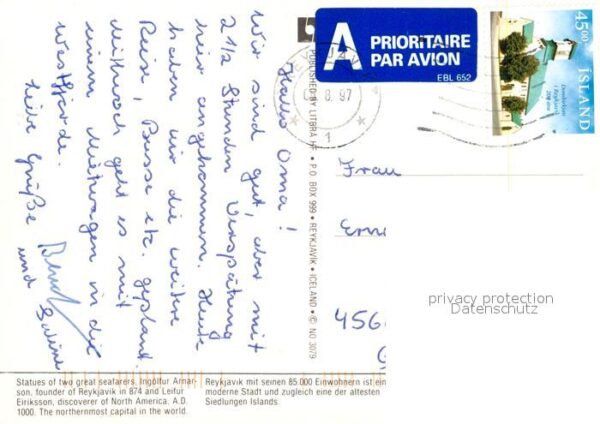 Hallo Oma!
Wir sind gut, aber mit
2 1/2 Stunden Verspätung
hier angekommen. Heute
haben wir die weitere
Reise, Busse etc. geplant.
Mittwoch geht es mit
einem Mietwagen in die
Westfjorde.
Liebe Grüße
und Sabine
PUBLISHED BY LITBRA HF • P.O. BOX 999 • REYKJAVIK • ICELAND • © NO 3079
A PRIORITAIRE
PAR AVION
EBL 652
8. 97
1
4500
ÍSLAND
Dómkirkjan
í Reykjavík
200 ára
Frau
456
privacy protection
Datenschutz
Statues of two great seafarers, Ingólfur Arnar-
son, founder of Reykjavik in 874 and Leifur
Eiríksson, discoverer of North America, A.D.
1000. The northernmost capital in the world.
Reykjavik mit seinen 85.000 Einwohnern ist ein
moderne Stadt und zugleich eine der ältesten
Siedlungen Islands.